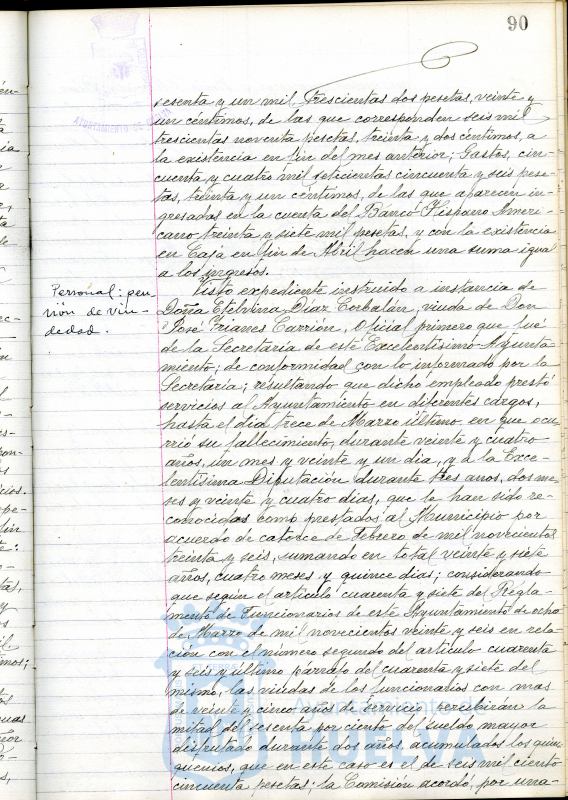 90
AYUNTAMIENTO DE
sesenta y un mil trescientas dos pesetas, veinte y
un céntimos, de las que corresponden seis mil
trescientas noventa pesetas, treinta y dos céntimos, a
la existencia en fin del mes anterior; Gastos, cin-
cuenta y cuatro mil setecientas cincuenta y seis pese-
tas, treinta y un céntimos, de las que aparecen in-
gresadas en la cuenta del Banco Hispano Ameri-
cano treinta y siete mil pesetas, y con la existencia
en Caja en fin de Abril hacen una suma igual
a los ingresos.
Personal: pen-
sión de viu-
dedad.
Visto expediente instruido a instancia de
Doña Etelvina Díaz Corbalán, viuda de Don
José Frianes Carrion, Oficial primero que fué
de la Secretaria de este Excelentísimo Ayunta-
miento; de conformidad con lo informado por la
Secretaria; resultando que dicho empleado prestó
servicios al Ayuntamiento en diferentes cargos,
hasta el dia trece de Marzo último, en que ocu-
rrió su fallecimiento, durante veinte y cuatro
años, un mes y veinte y un dia, y a la Exce-
lentísima Diputación durante tres anos, dos me-
ses y veinte y cuatro dias, que le han sido re-
conocidas como prestados al Municipio por
acuerdo de catorce de Febrero de mil novecientos
treinta y seis, sumando en total veinte y siete
años, cuatro meses y quince dias; considerando
que según el artículo cuarenta y siete del Regla-
mento de Funcionarios de este Ayuntamiento de ocho
de Marzo de mil novecientos veinte y seis en rela-
ción con el número segundo del artículo cuarenta
y seis y último párrafo del cuarenta y siete del
mismo, las viudas de los funcionarios con mas
de veinte y cinco años de servicio percibirán la
mitad del sesenta por ciento del sueldo mayor
disfrutado durante dos años, acumulados los quin-
quenios, que en este caso es el de seis mil ciento
cincuenta pesetas; la Comisión acordó, por una-